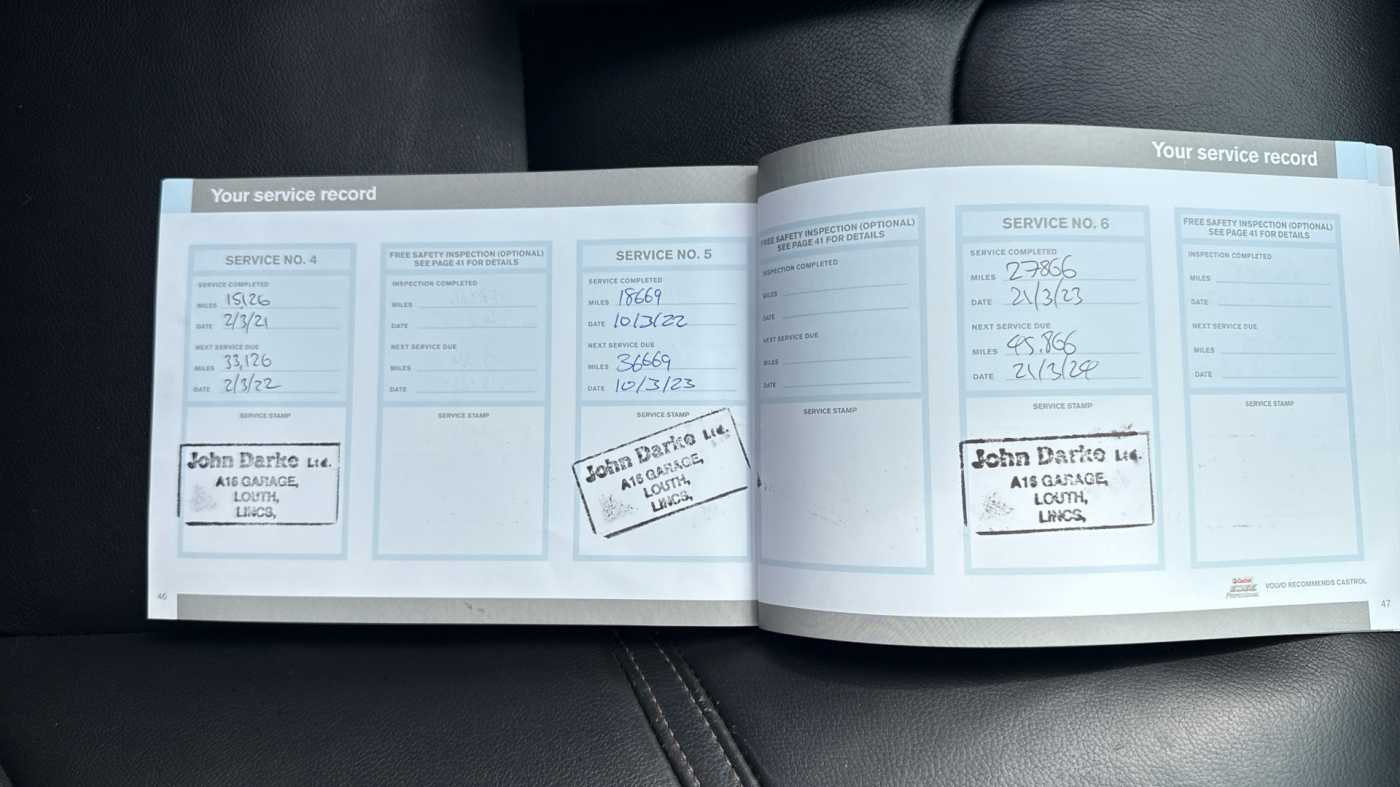 Your service record
SERVICE NO. 4
SERVICE COMPLETED
MILES 15,126
DATE 2/3/21
NEXT SERVICE DUE
MILES 33,126
DATE 2/3/22
SERVICE STAMP
John Darke Ltd.
A16 GARAGE,
LOUTH,
LINCS,
FREE SAFETY INSPECTION (OPTIONAL)
SEE PAGE 41 FOR DETAILS
INSPECTION COMPLETED
MILES
DATE
NEXT SERVICE DUE
MILES
DATE
SERVICE STAMP
SERVICE NO. 5
SERVICE COMPLETED
MILES 18669
DATE 10/3/22
NEXT SERVICE DUE
MILES 36669
DATE 10/3/23
SERVICE STAMP
John Darke Ltd.
A16 GARAGE,
LOUTH,
LINCS,
46
Your service record
FREE SAFETY INSPECTION (OPTIONAL)
SEE PAGE 41 FOR DETAILS
INSPECTION COMPLETED
MILES
DATE
NEXT SERVICE DUE
MILES
DATE
SERVICE STAMP
SERVICE NO. 6
SERVICE COMPLETED
MILES 27866
DATE 21/3/23
NEXT SERVICE DUE
MILES 45.866
DATE 21/3/24
SERVICE STAMP
John Darke Ltd.
A16 GARAGE,
LOUTH,
LINCS,
FREE SAFETY INSPECTION (OPTIONAL)
SEE PAGE 41 FOR DETAILS
INSPECTION COMPLETED
MILES
DATE
NEXT SERVICE DUE
MILES
DATE
SERVICE STAMP
Castrol
EDGE
PROFESSIONAL
VOLVO RECOMMENDS CASTROL
47